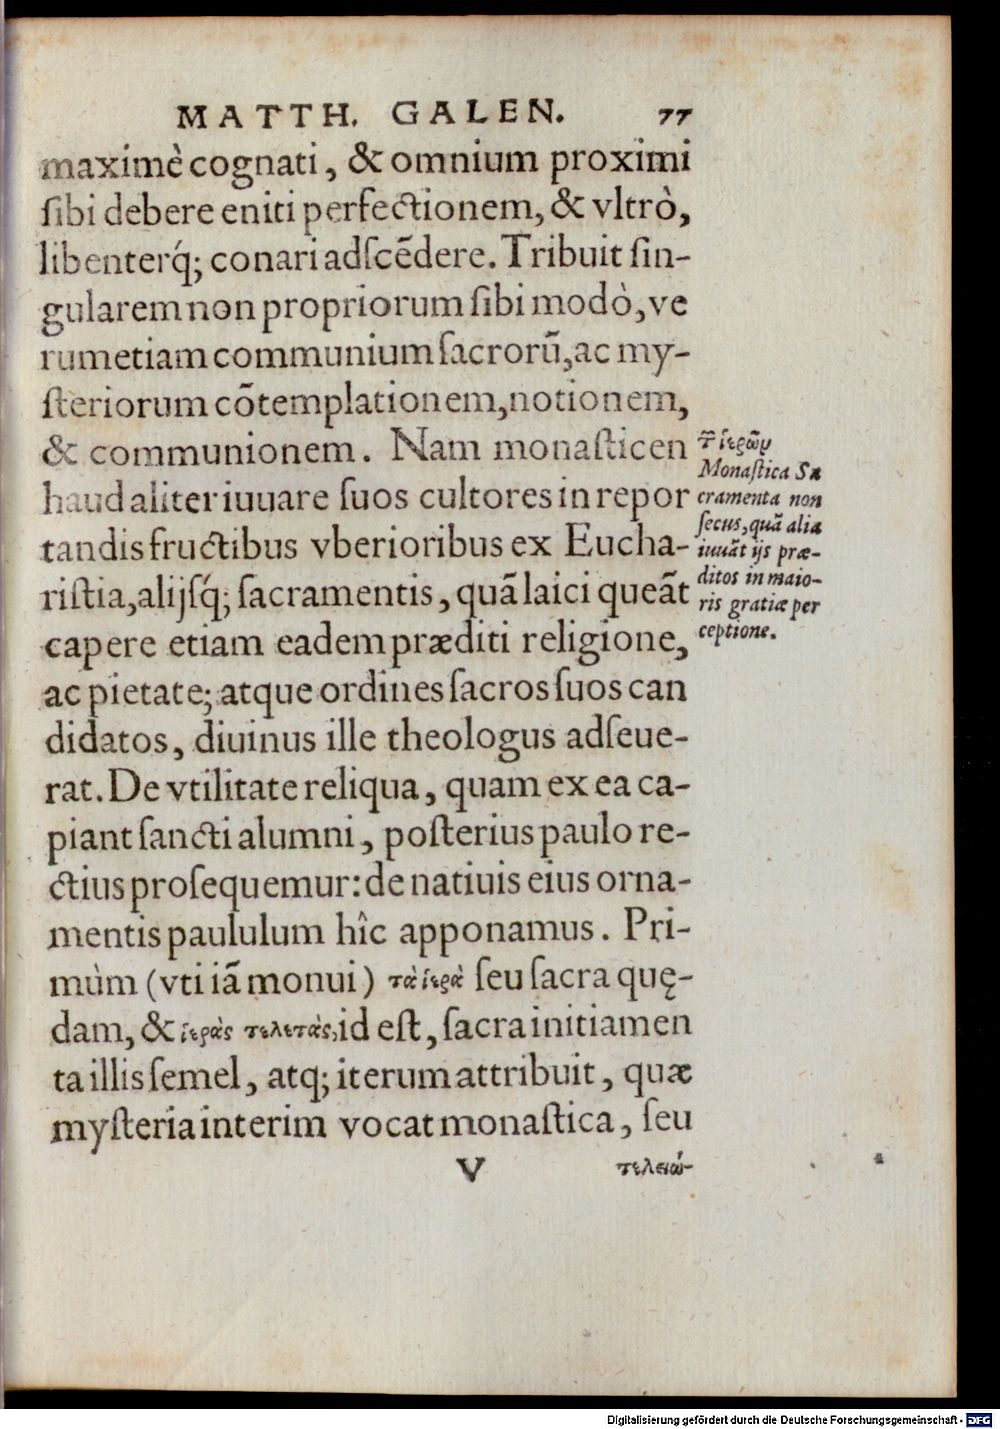 MATTH. GALEN. 77
maximè cognati, & omnium proximi
ſibi debere eniti perfectionem, & vltrò,
libenterq́; conari adſcẽdere. Tribuit ſin-
gularem non propriorum ſibi modò, ve
rum etiam communium ſacrorũ, ac my-
ſteriorum cõtemplationem, notionem,
& communionem. Nam monaſticen
haud aliter iuuare ſuos cultores in repor
tandis fructibus vberioribus ex Eucha-
riſtia, alijſq́; ſacramentis, quã laici queãt
capere etiam eadem præditi religione,
ac pietate; atque ordines ſacros ſuos can
didatos, diuinus ille theologus adſeue-
rat. De vtilitate reliqua, quam ex ea ca-
piant ſancti alumni, poſterius paulo re-
ctius proſequemur: de natiuis eius orna-
mentis paululum hîc apponamus. Pri-
mùm (vti iã monui) τὰ ἱερὰ ſeu ſacra quę-
dam, & ἱερὰς τελετὰς, id eſt, ſacra initiamen
ta illis ſemel, atq; iterum attribuit, quæ
myſteria interim vocat monaſtica, ſeu
V τελειώ-
ἱερῶν
Monaſtica Sa
cramenta non
ſecus, quã alia
iuuãt ijs præ-
ditos in maio-
ris gratiæ per
ceptione.
Digitalisierung gefördert durch die Deutsche Forschungsgemeinschaft - DFG